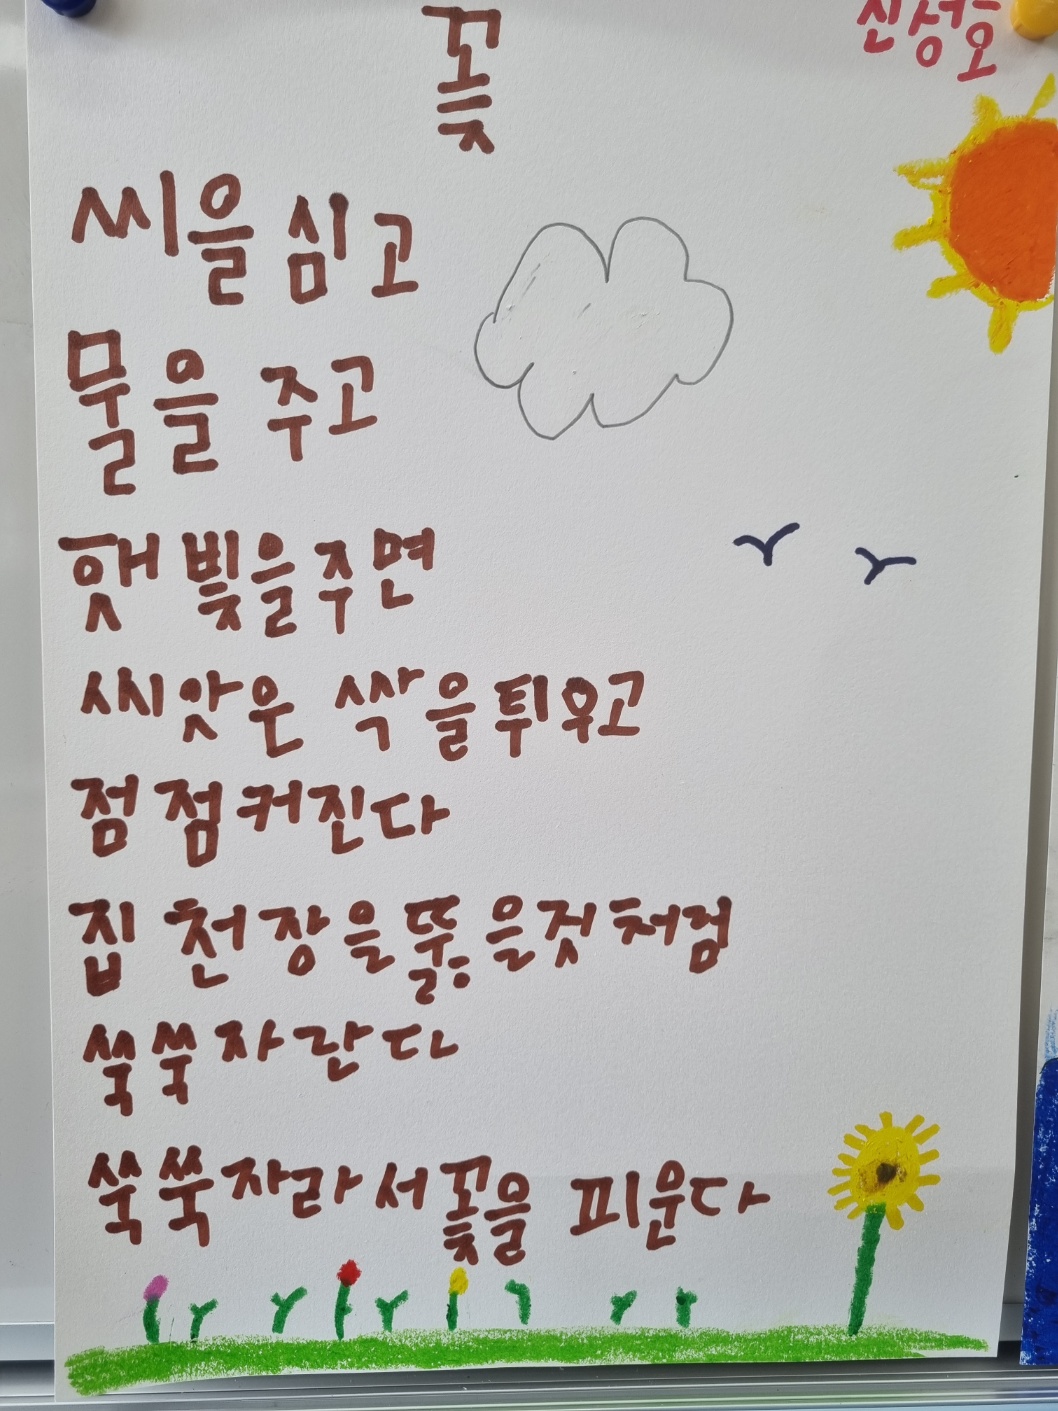 꽃
신성호
씨을 심고
물을 주고
햇빛을주면
씨앗은 싹을튀우고
점점커진다
집 천장을뚫을것처럼
쑥쑥자란다
쑥쑥자라서꽃을 피운다